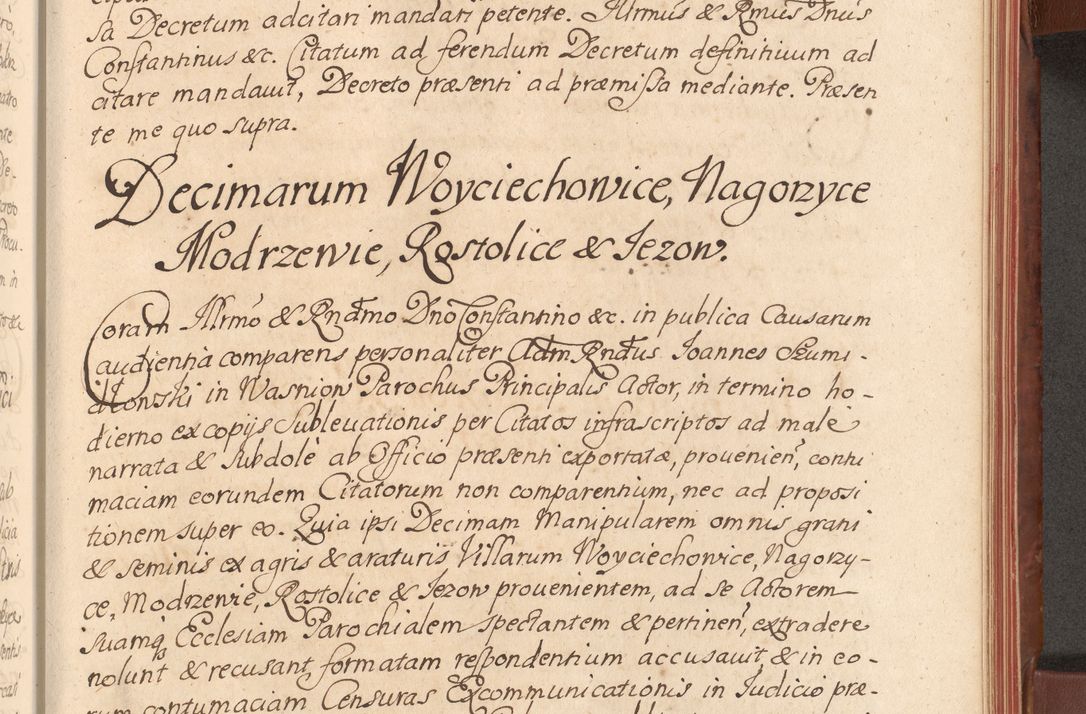 sa Decretum adcitari mandari petente. Illrmus & Rmus Dnus
Constantinus &c. Citatum ad ferendum Decretum definitiuum ad
citare mandauit, Decreto præsenti ad præmissa mediante. Præsen
te me quo supra.
Decimarum Woyciechowice, Nagorzyce
Modrzewie, Rostolice & Iezow.
Coram Illrmo & Rndmo Dno Constantino &c. in publica Causarum
audientia comparens personaliter Adm Rndus Ioannes Szumi-
dłowski in Wasniow Parochus Principalis Actor, in termino ho-
dierno ex copijs Subleuationis per Citatos infrascriptos ad malè
narrata & subdolè ab Officio præsenti exportatæ, prouenien, contu
maciam eorundem Citatorum non comparentium, nec ad proposi
tionem super eo. Quia ipsi Decimam Manipularem omnis grani
& seminis ex agris & araturis Villarum Woyciechowice, Nagorzy-
ce, Modrzewie, Rostolice & Iezow prouenientem, ad se Actorem
suamq Ecclesiam Parochialem spectantem & pertinen, extradere
nolunt & recusant formatam respondentium accusauit, & in eo-
rum contumaciam Censuras Excommunicationis in Iudicio præ-